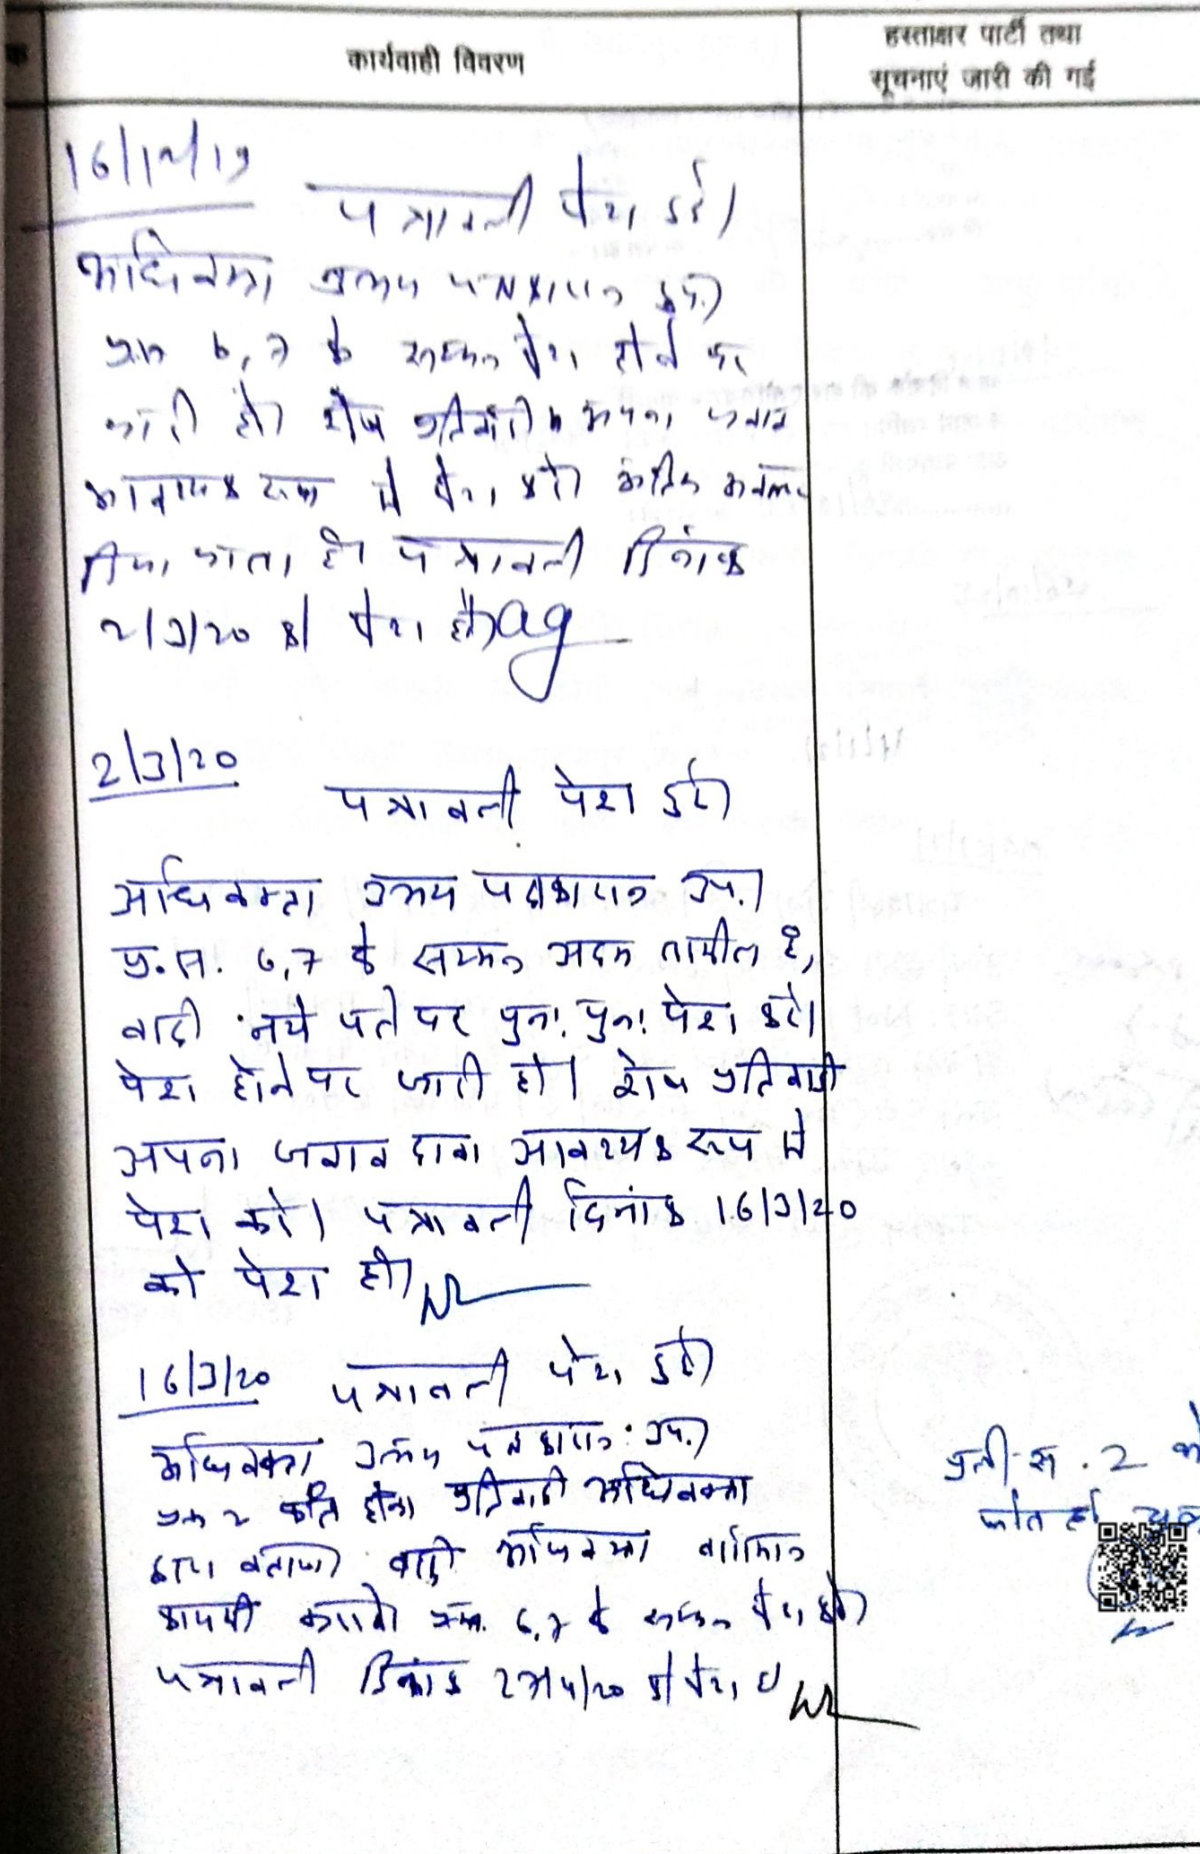 कार्यवाही विवरण
हस्ताक्षर पार्टी तथा
सूचनाएं जारी की गई
16/12/19
पत्रावली पेश हुई।
अधिवक्ता उभय पक्षकारान उप.।
6, 7 के सम्मन पेश होने पर
जारी हो। शेष प्रतिवादी अपना जवाब
आवश्यक रूप से पेश करे। अंतिम अवसर
दिया जाता है। पत्रावली दिनांक
2/3/20 को पेश हो।
2/3/20
पत्रावली पेश हुई।
अधिवक्ता उभय पक्षकारान उप.।
प्र.सं. 6,7 के सम्मन अदम तामील है,
वादी नये पते पर पुनः पुनः पेश करे।
पेश होने पर जारी हो। शेष प्रतिवादी
अपना जवाब दावा आवश्यक रूप से
पेश करे। पत्रावली दिनांक 16/3/20
को पेश हो।
16/3/20 पत्रावली पेश हुई।
अधिवक्ता उभय पक्षकारान उप.।
2 फौत होना प्रतिवादी अधिवक्ता
द्वारा बताया वादी अधिवक्ता
6,7 के सम्मन पेश करे।
पत्रावली दिनांक को पेश हो
प्रती.सं. 2
फौत हो